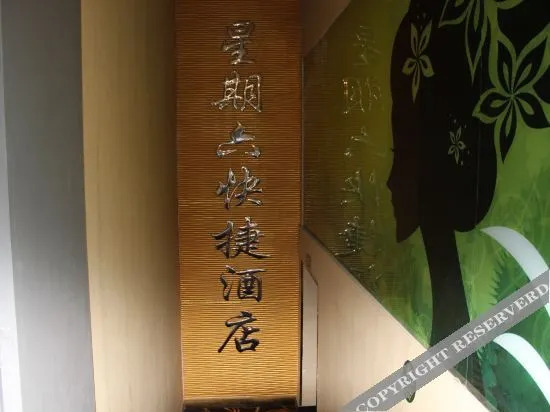 星期六快捷酒店
COPYRIGHT RESERVERD